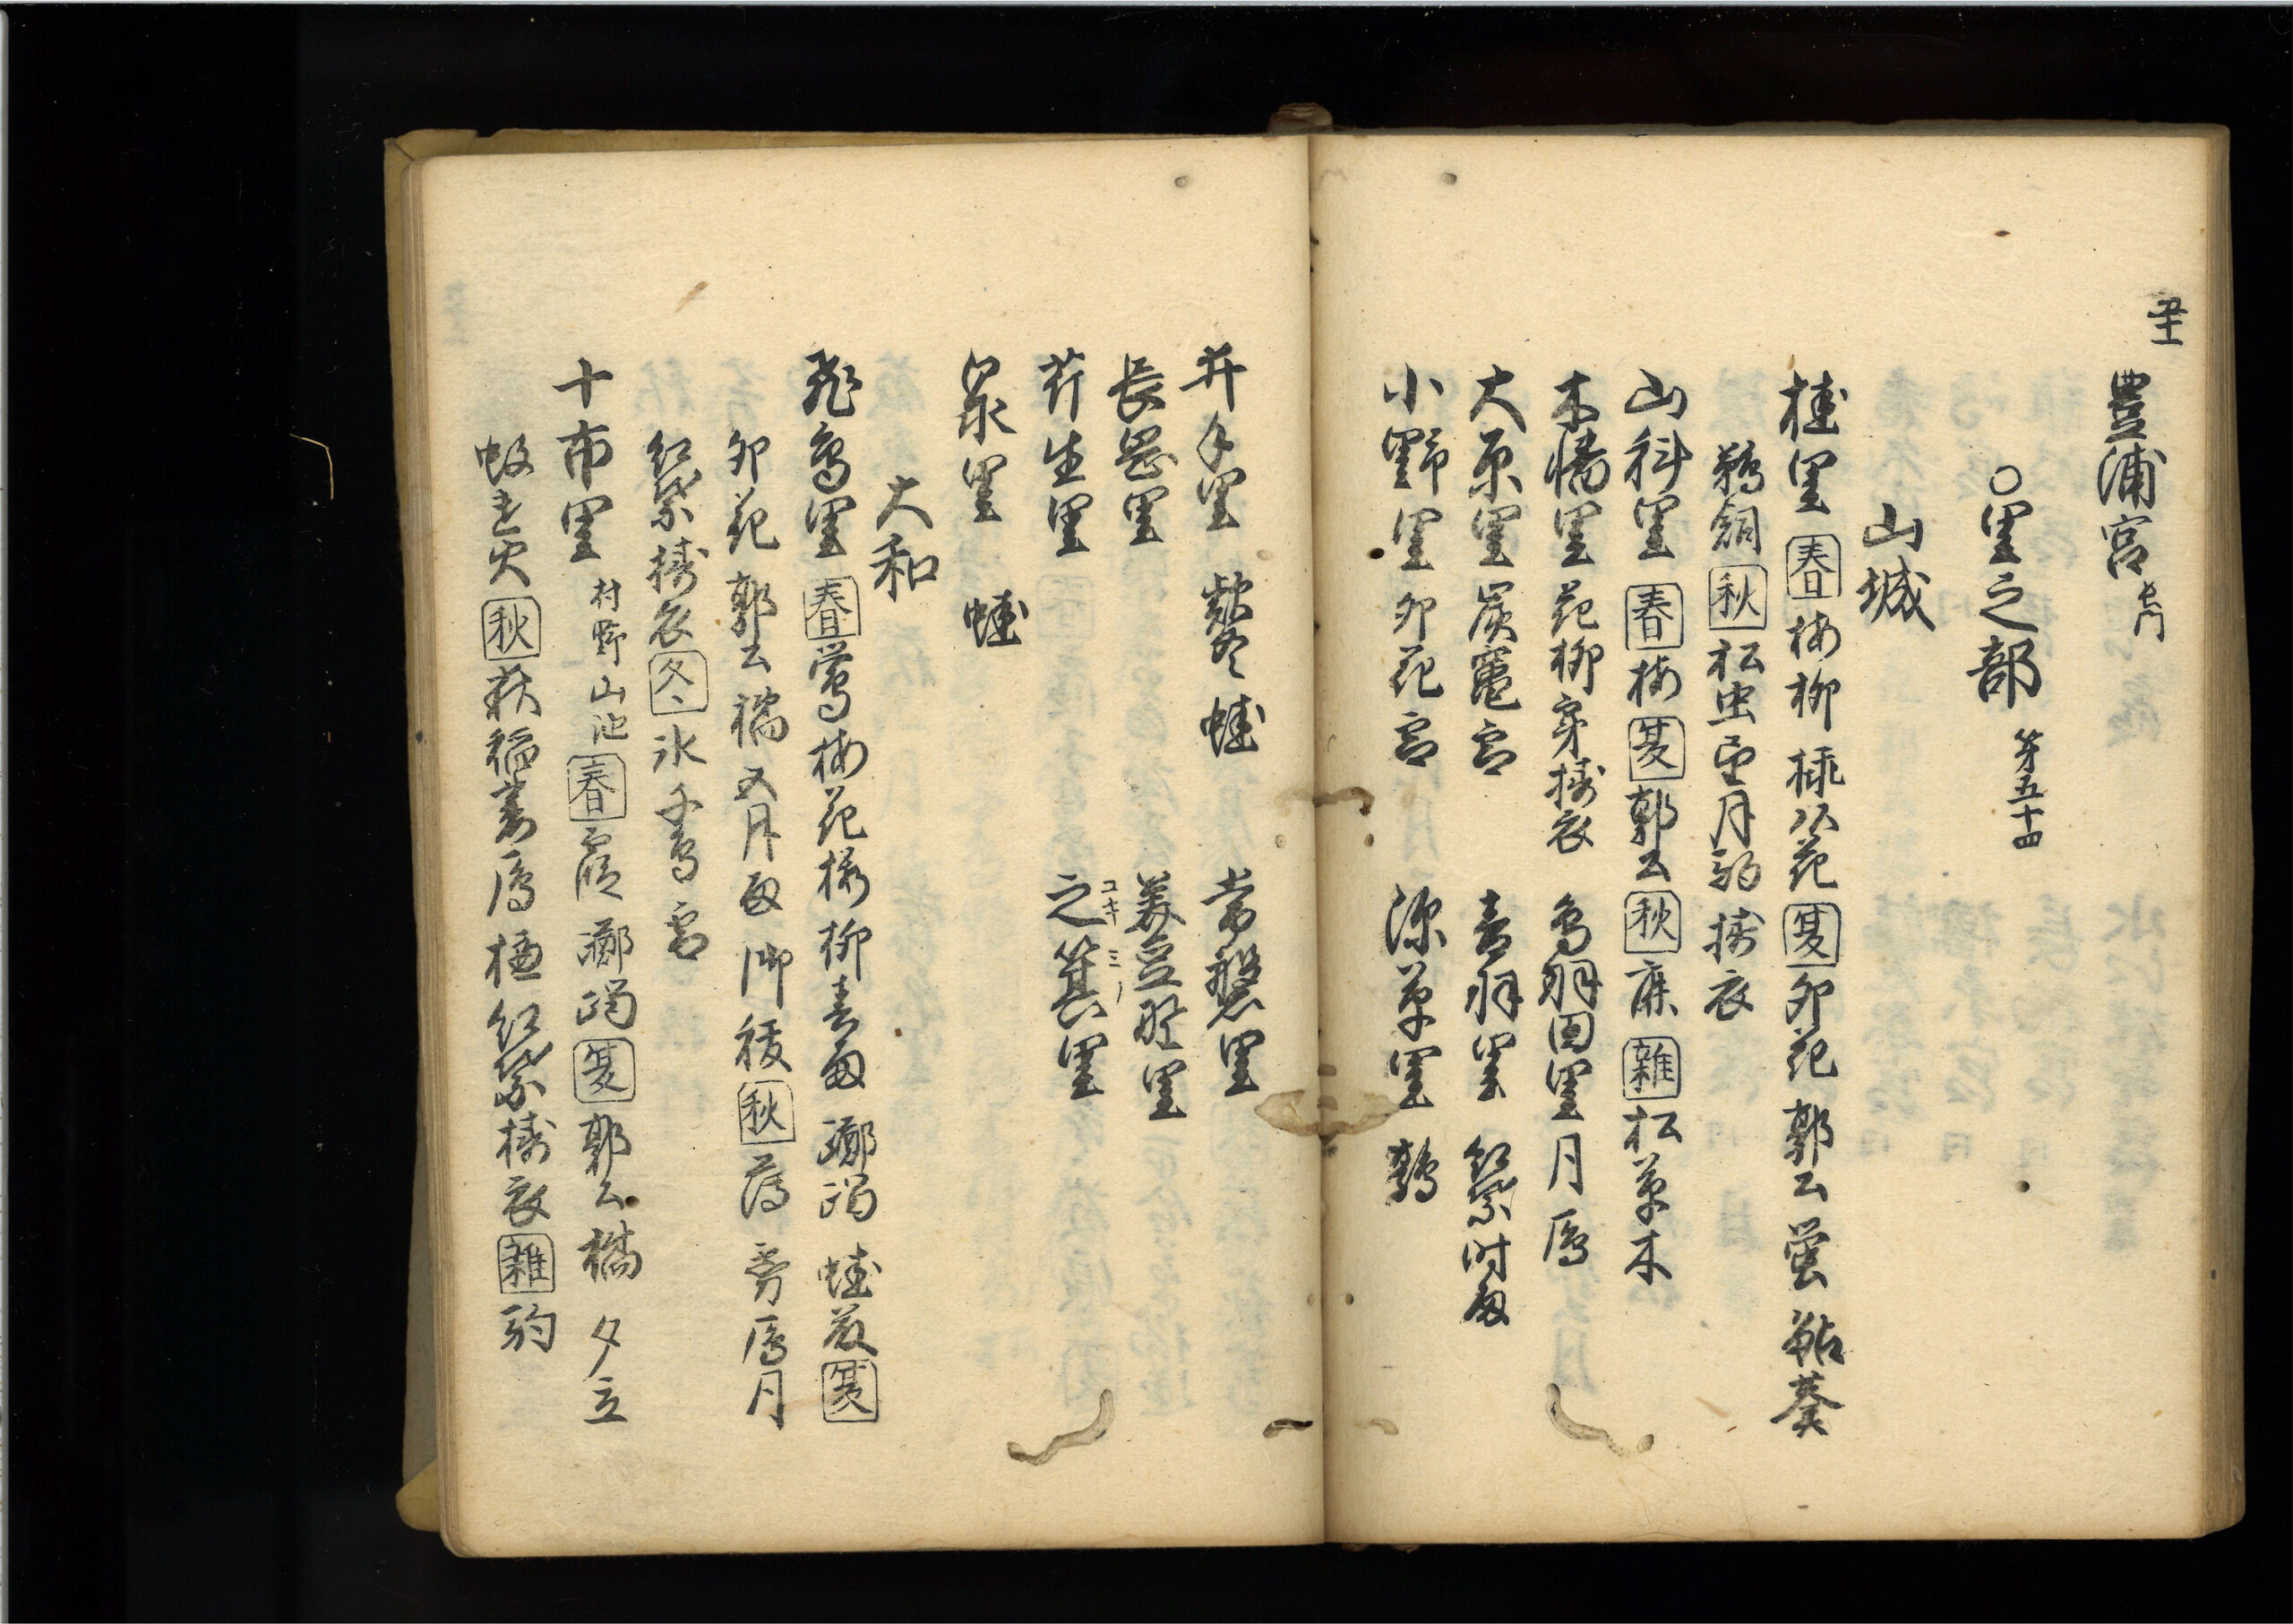 豊浦宮 長門
○里之部 第五十四
山城
桂里 春 梅 柳 桃 花 夏 卯花 郭公 蛍 鮎 葵
鵜飼 秋 松虫 望月駒 擣衣
山科里 春 梅 夏 郭公 秋 鹿 雑 松 草木
木幡里 花 柳 擣衣 鳥羽田里 月 鴈
大原里 炭竈 雪 音羽里 紅葉 時雨
小野里 卯花 雪 深草里 鶉
井手里 款冬 蛙 常盤里
長岡里 美豆野里
芹生里 之箕里 コキミノ
泉里 蛙
大和
飛鳥里 春 鶯 梅 花 桜 柳 春雨 躑躅 蛙 菫 夏
卯花 郭公 橘 五月雨 御祓 秋 萩 霧 鴈 月
紅葉 擣衣 冬 氷 千鳥 雪
十市里 村 野 山 池 春 霞 躑躅 夏 郭公 橘 夕立
蚊遣火 秋 萩 稲妻 鴈 紅葉 擣衣 雑 駒